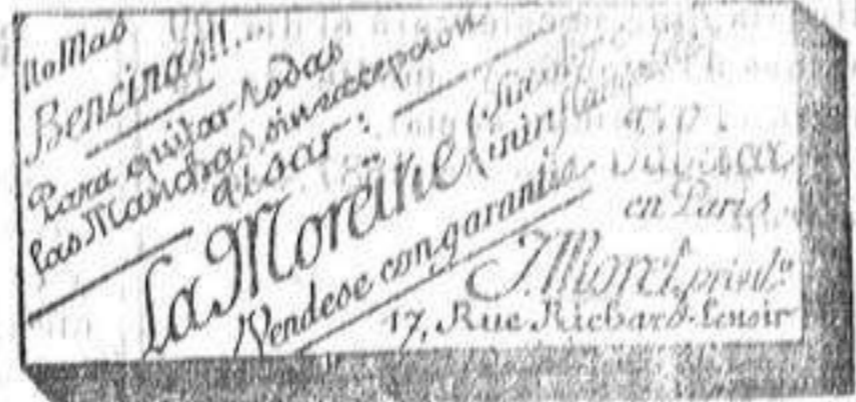 No Mas
Bencinas!!.
Para quitar todas
las Manchas sin excepcion
usar:
La Moreïne (Sin olor
ininflamable)
Vendese con garantia
en Paris
J. Morel, privdo
17, Rue Richard-Lenoir